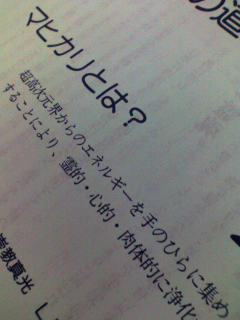 の道
マヒカリとは？
超高次元界からのエネルギーを手のひらに集め
することにより、霊的・心的・肉体的に浄化
教真光